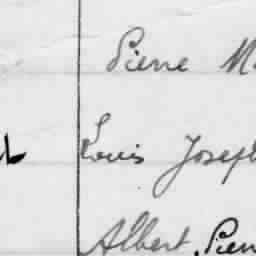 Pierre M
Louis Joseph
Albert, Pierr